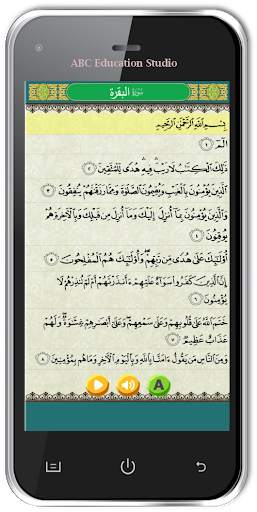 ABC Education Studio
سورة البقرة
بِسْمِ اللَّهِ الرَّحْمَٰنِ الرَّحِيمِ
الٓمٓ ١
ذَٰلِكَ الْكِتَابُ لَا رَيْبَ ۛ فِيهِ ۛ هُدًى لِّلْمُتَّقِينَ ٢
الَّذِينَ يُؤْمِنُونَ بِالْغَيْبِ وَيُقِيمُونَ الصَّلَاةَ وَمِمَّا رَزَقْنَاهُمْ يُنفِقُونَ ٣
وَالَّذِينَ يُؤْمِنُونَ بِمَا أُنزِلَ إِلَيْكَ وَمَا أُنزِلَ مِن قَبْلِكَ وَبِالْآخِرَةِ هُمْ
يُوقِنُونَ ٤
أُولَٰئِكَ عَلَىٰ هُدًى مِّن رَّبِّهِمْ ۖ وَأُولَٰئِكَ هُمُ الْمُفْلِحُونَ ٥
إِنَّ الَّذِينَ كَفَرُوا سَوَاءٌ عَلَيْهِمْ أَأَنذَرْتَهُمْ أَمْ لَمْ تُنذِرْهُمْ لَا
يُؤْمِنُونَ ٦
خَتَمَ اللَّهُ عَلَىٰ قُلُوبِهِمْ وَعَلَىٰ سَمْعِهِمْ ۖ وَعَلَىٰ أَبْصَارِهِمْ غِشَاوَةٌ ۖ وَلَهُمْ
عَذَابٌ عَظِيمٌ ٧
وَمِنَ النَّاسِ مَن يَقُولُ آمَنَّا بِاللَّهِ وَبِالْيَوْمِ الْآخِرِ وَمَا هُم بِمُؤْمِنِينَ ٨
A